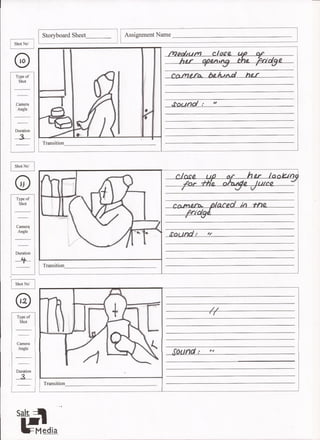 Storyboard Sheet________
Assignment Name
Shot No/
10
Type of
Shot
Camera
Angle
Duration
3
Transition
medium close up of
her opening the fridge
camera behind her
sound : "
Shot No/
11
Type of
Shot
Camera
Angle
Duration
4
Transition
close up of her looking
for the orange juice
camera placed in the
fridge
sound : "
Shot No/
12
Type of
Shot
Camera
Angle
Duration
3
Transition
"
sound : "
Salt
Media